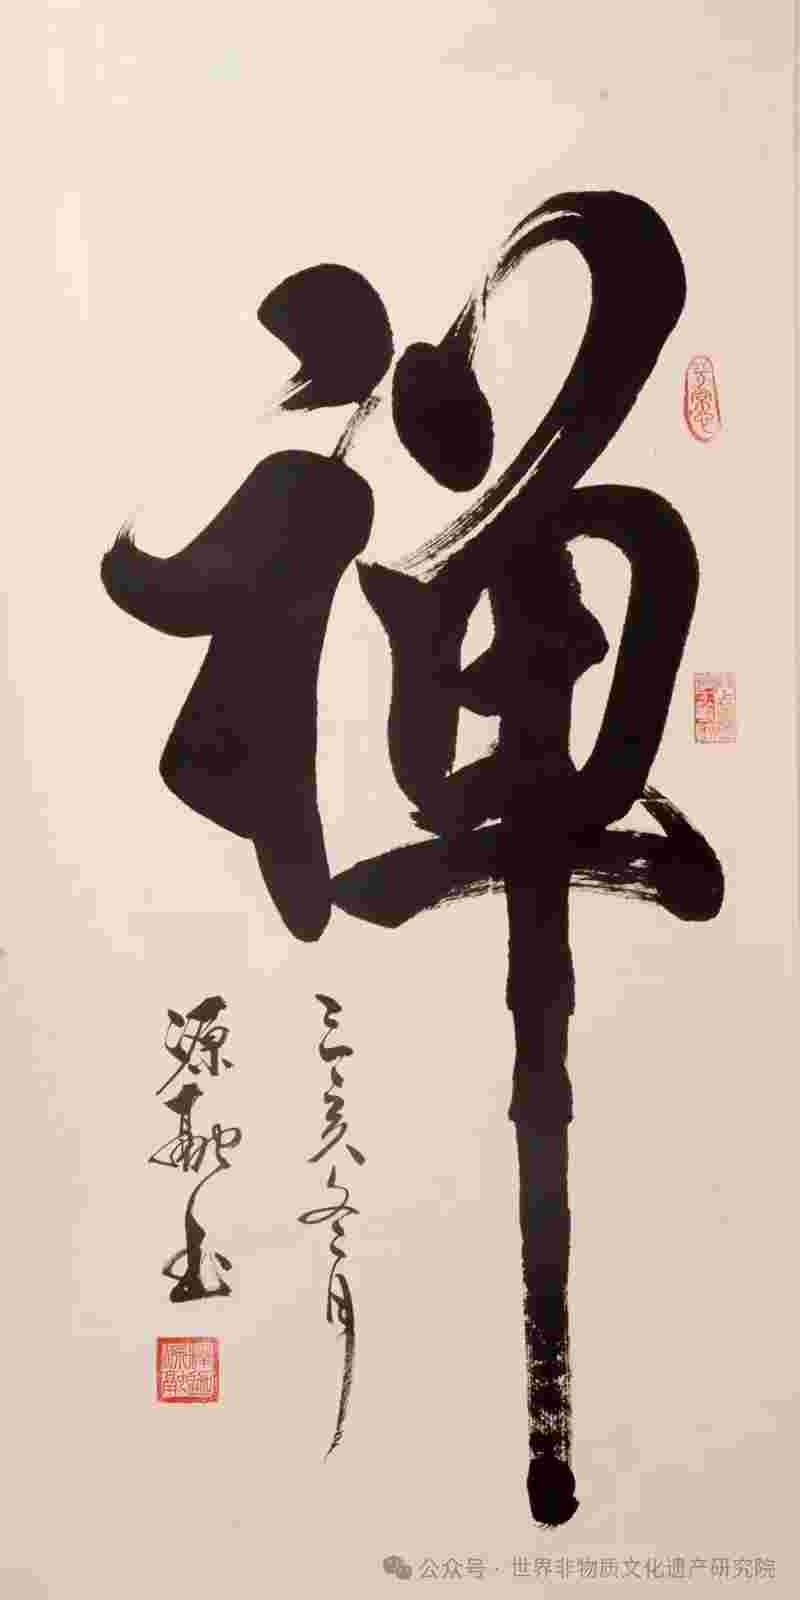 禅
亥冬月
源融书
公众号 · 世界非物质文化遗产研究院